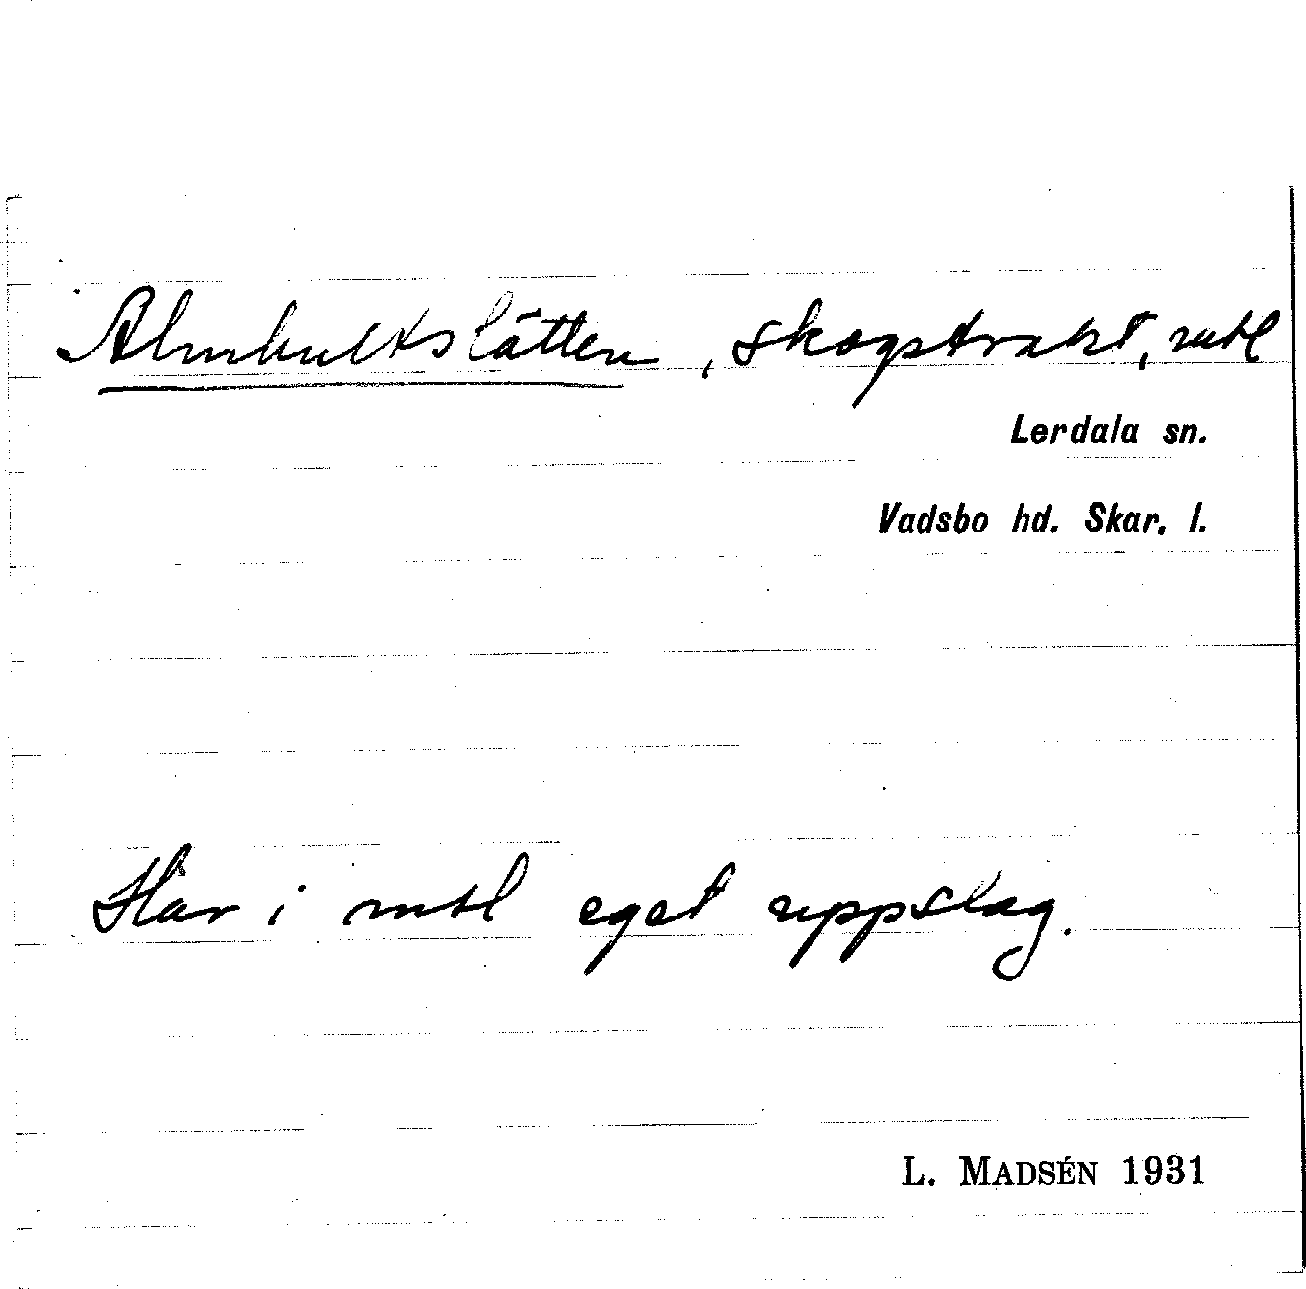 Almhultslätten, skogstrakt, mtl
Lerdala sn.
Vadsbo hd. Skar. l.
Har i mtl eget uppslag.
L. MADSÉN 1931